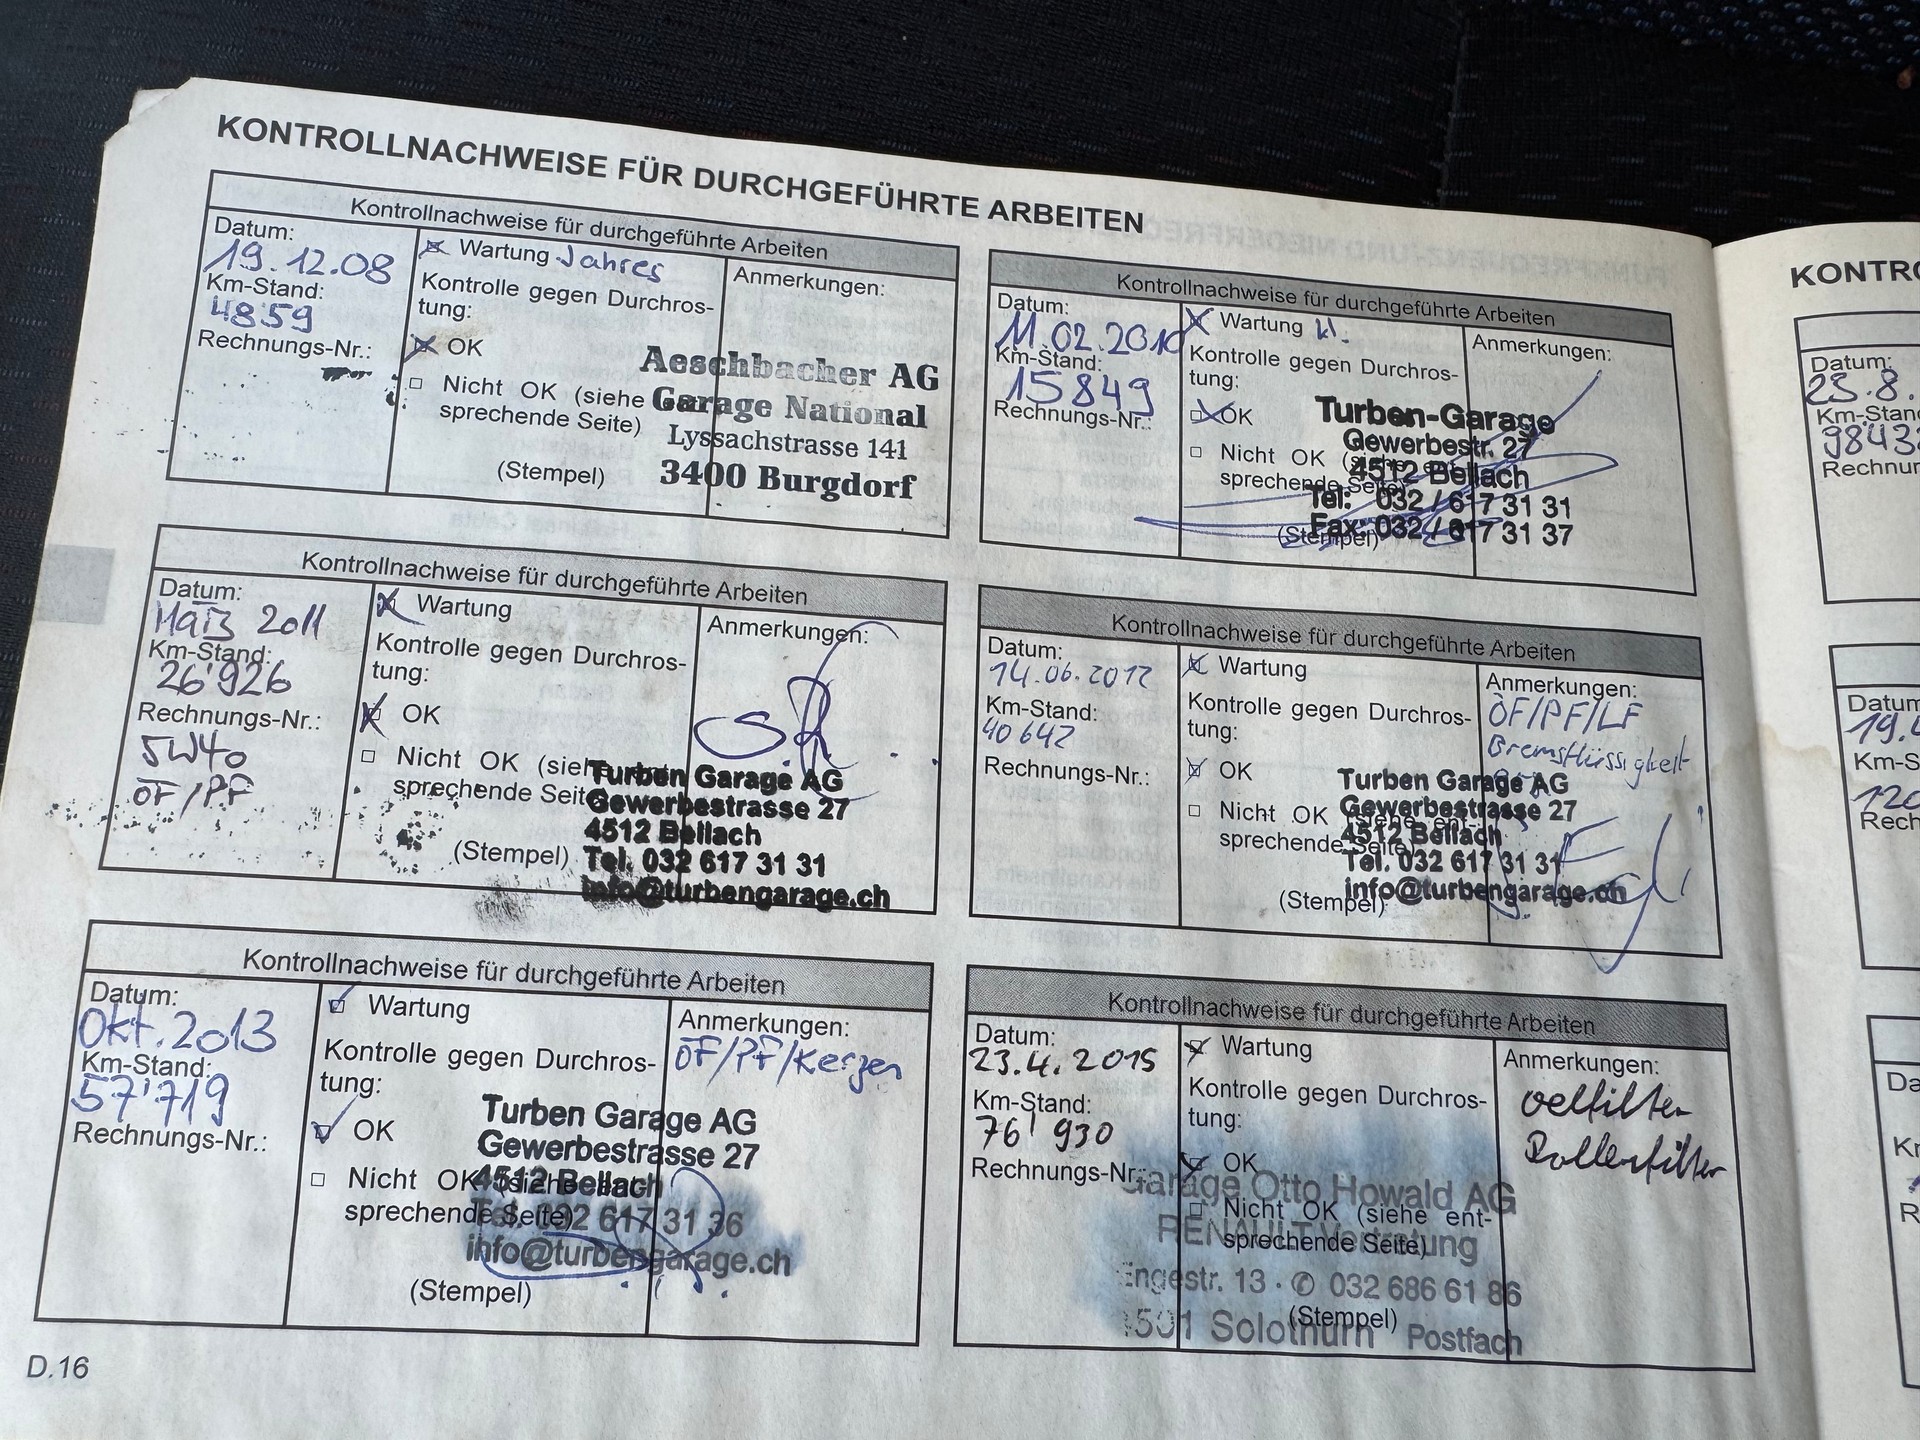 KONTROLLNACHWEISE FÜR DURCHGEFÜHRTE ARBEITEN
Kontrollnachweise für durchgeführte Arbeiten
Datum:
19.12.08
Km-Stand:
4859
Rechnungs-Nr.:
Wartung Jahres
Kontrolle gegen Durchros-
tung:
OK
Nicht OK (siehe
sprechende Seite)
(Stempel)
Anmerkungen:
Aeschbacher AG
Garage National
Lyssachstrasse 141
3400 Burgdorf
Kontrollnachweise für durchgeführte Arbeiten
Datum:
11.02.2010
Km-Stand:
15849
Rechnungs-Nr.:
Wartung kl.
Kontrolle gegen Durchros-
tung:
OK
Nicht OK (siehe ent-
sprechende Seite)
(Stempel)
Anmerkungen:
Turben-Garage
Gewerbestr. 27
4512 Bellach
Tel: 032 / 617 31 31
Fax: 032 / 617 31 37
Kontrollnachweise für durchgeführte Arbeiten
Datum:
März 2011
Km-Stand:
26'926
Rechnungs-Nr.:
5W40
ÖF/PF
Wartung
Kontrolle gegen Durchros-
tung:
OK
Nicht OK (siehe ent-
sprechende Seite)
(Stempel)
Anmerkungen:
Turben Garage AG
Gewerbestrasse 27
4512 Bellach
Tel. 032 617 31 31
info@turbengarage.ch
Kontrollnachweise für durchgeführte Arbeiten
Datum:
14.06.2012
Km-Stand:
40642
Rechnungs-Nr.:
Wartung
Kontrolle gegen Durchros-
tung:
OK
Nicht OK (siehe ent-
sprechende Seite)
(Stempel)
Anmerkungen:
ÖF/PF/LF
Bremsflüssigkeit
Turben Garage AG
Gewerbestrasse 27
4512 Bellach
Tel. 032 617 31 31
info@turbengarage.ch
Kontrollnachweise für durchgeführte Arbeiten
Datum:
Okt. 2013
Km-Stand:
57'719
Rechnungs-Nr.:
Wartung
Kontrolle gegen Durchros-
tung:
OK
Nicht OK (siehe ent-
sprechende Seite)
(Stempel)
Anmerkungen:
ÖF/PF/Kerzen
Turben Garage AG
Gewerbestrasse 27
4512 Bellach
Tel. 032 617 31 36
info@turbengarage.ch
Kontrollnachweise für durchgeführte Arbeiten
Datum:
23.4.2015
Km-Stand:
76'930
Rechnungs-Nr.:
Wartung
Kontrolle gegen Durchros-
tung:
OK
Nicht OK (siehe ent-
sprechende Seite)
(Stempel)
Anmerkungen:
Oelfilter
Pollenfilter
Garage Otto Howald AG
RENAULT Vertretung
Engestr. 13 · ✆ 032 686 61 86
4501 Solothurn Postfach
D.16
KONTRO
Datum:
23.8.
Km-Stand
9843
Rechnun
Datum
19.
Km-S
120
Rech
Da
Km
R